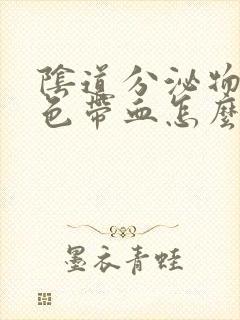 陰道分泌物
色帶血怎麼
墨衣青蛙